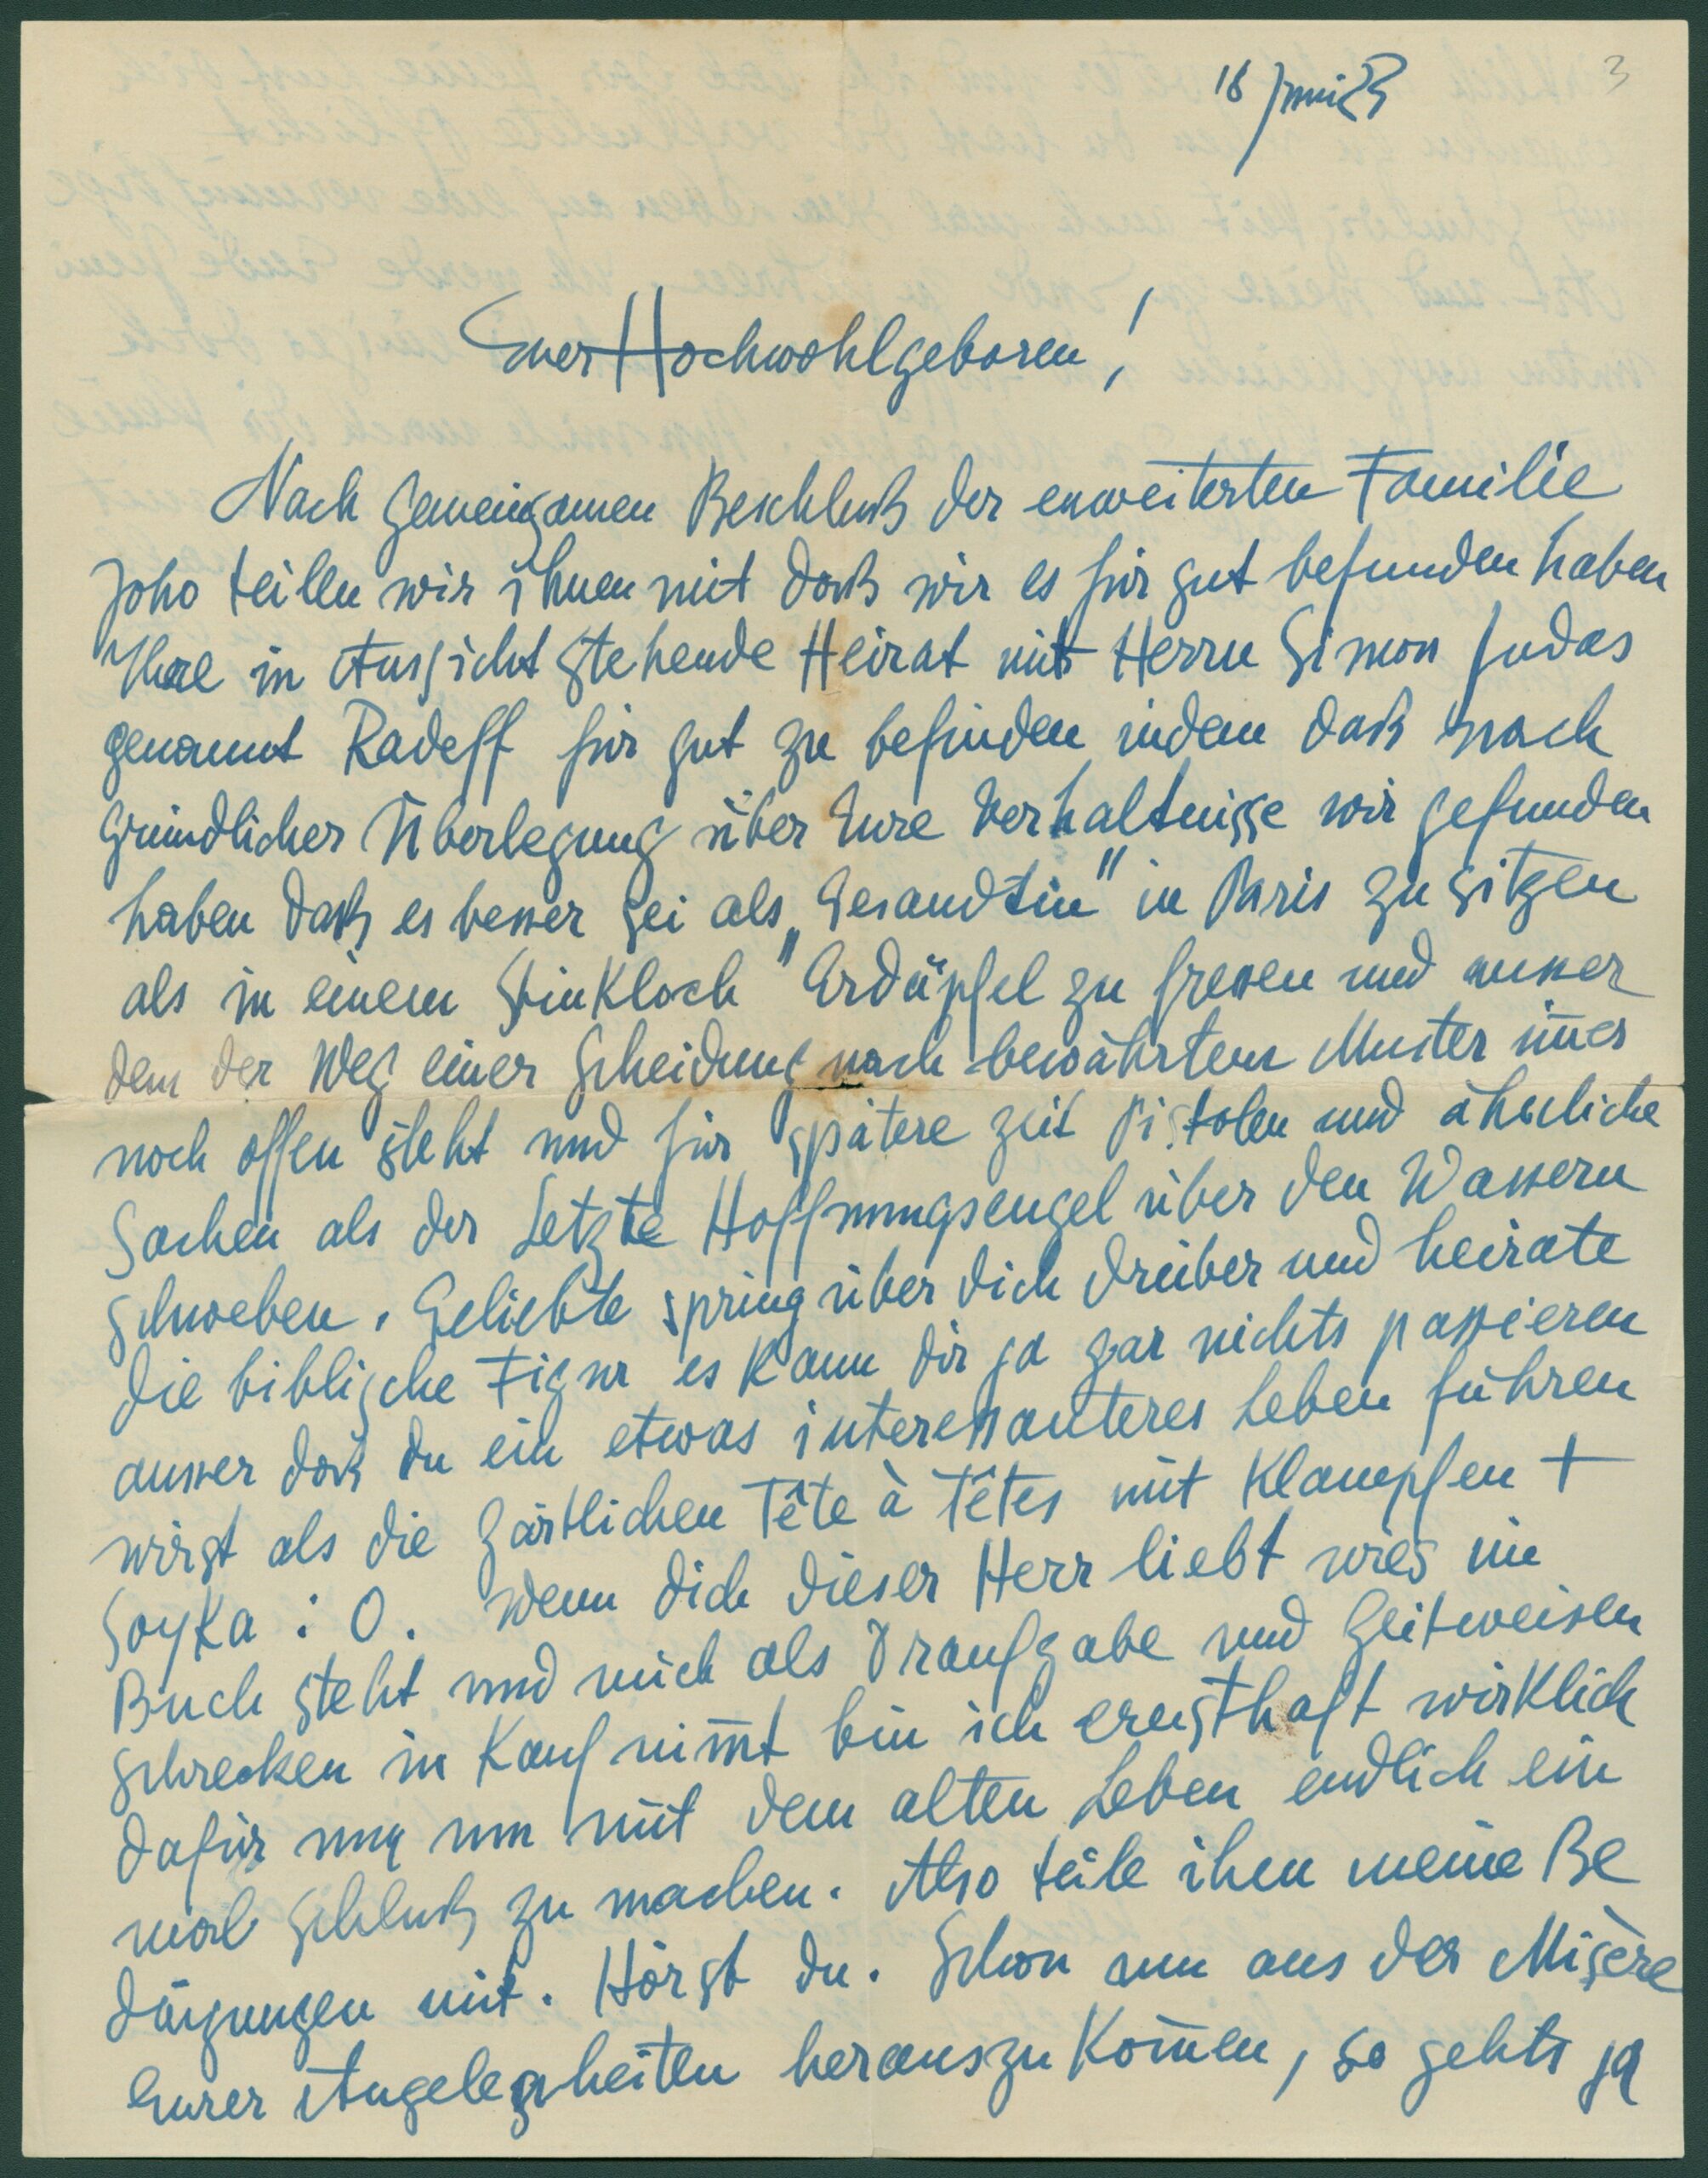 18 Juni 23
3
Euer Hochwohlgeboren!
Nach gemeinsamen Beschluß der erweiterten Familie
Joho teilen wir ihnen mit daß wir es für gut befunden haben
Ihre in Aussicht stehende Heirat mit Herrn Simon Judas
genannt Radeff für gut zu befinden indem daß nach
gründlicher Überlegung über Eure Verhältnisse wir gefunden
haben daß es besser sei als „Gesandtin" in Paris zu sitzen
als in einem Stinkloch Erdäpfel zu fressen und ausser
dem der Weg einer Scheidung nach bewährtem Muster im̅er
noch offen steht und für spätere zeit Pistolen und ähnliche
Sachen als der Letzte Hoffnungsengel über den Wassern
schweben. Geliebte spring über dich drüber und heirate
die biblische Figur es kann dir ja gar nichts passieren
ausser daß du ein etwas interessanteres Leben führen
wirst als die zärtlichen Tête à Têtes mit Klampfen +
Soyka : O. Wenn dich dieser Herr liebt wies im
Buch steht und mich als Draufgabe und Zeitweisen
schrecken in Kauf nim̅t bin ich ernsthaft wirklich
dafür nur um mit dem alten Leben endlich ein
mal Schluß zu machen. Also teile ihm meine Be
dingungen mit. Hörst du. Schon um aus der Misère
Eurer Angelegenheiten herauszukom̅en, so gehts ja